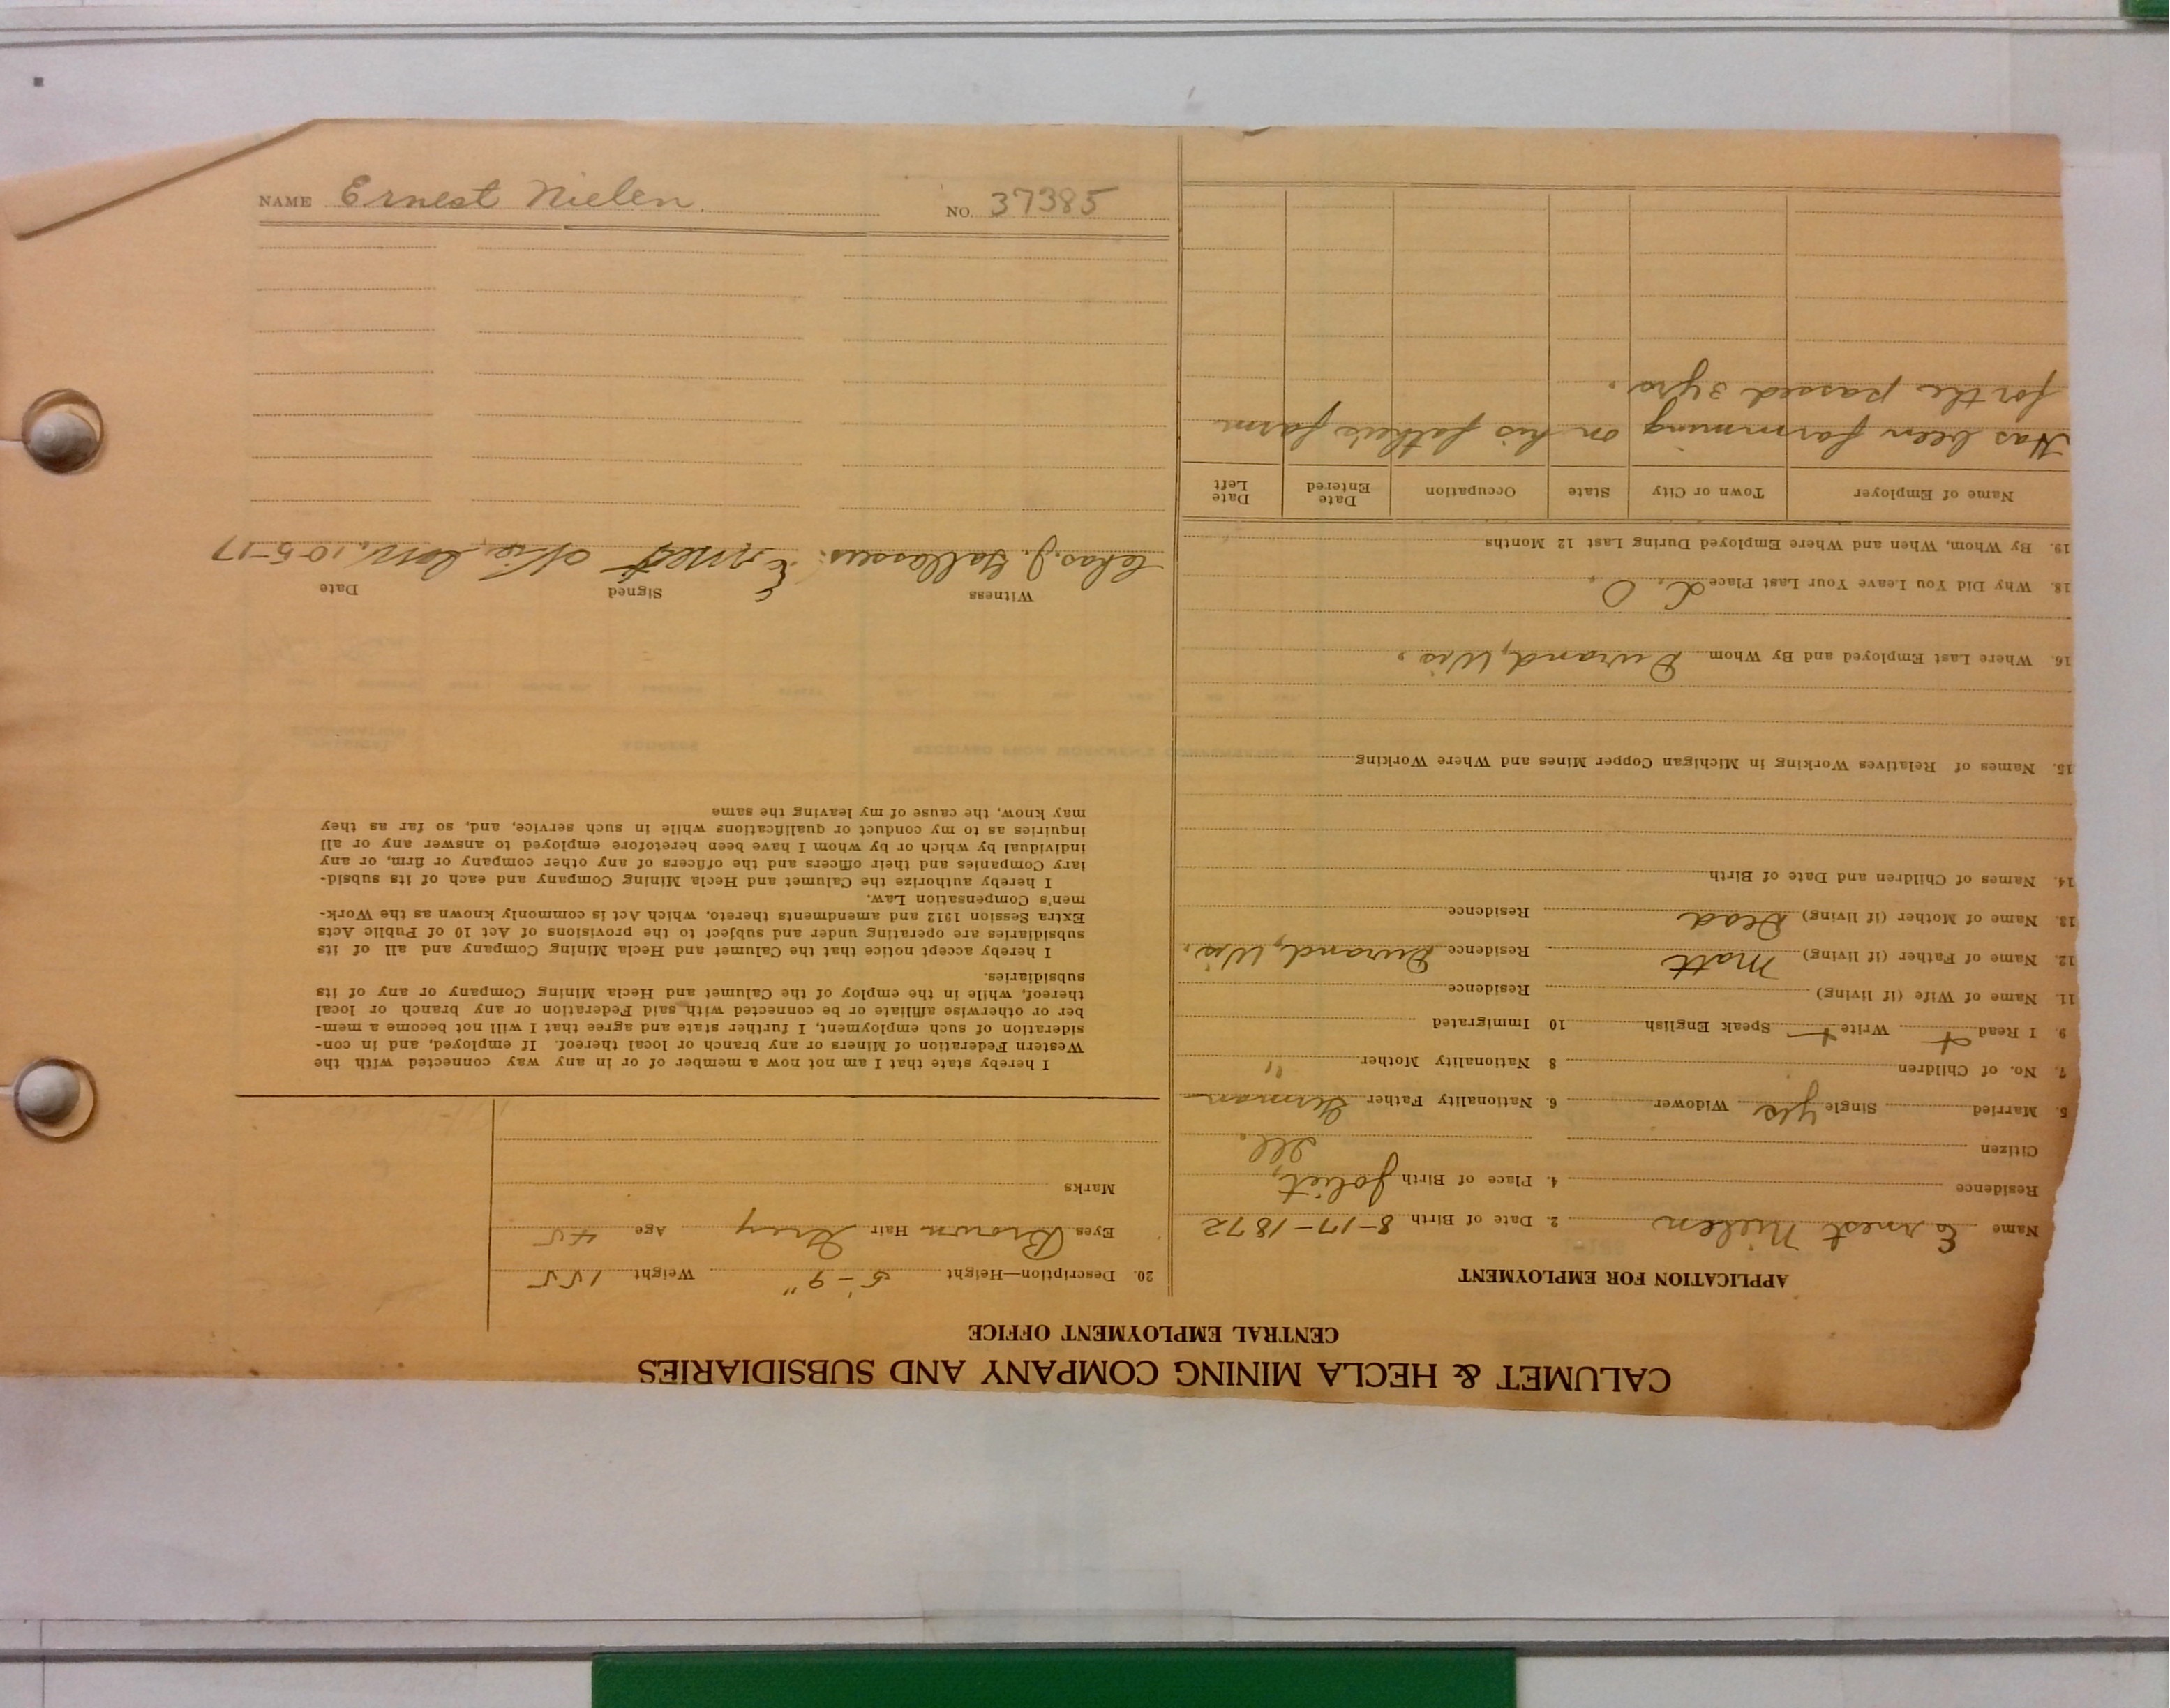 CALUMET & HECLA MINING COMPANY AND SUBSIDIARIES
CENTRAL EMPLOYMENT OFFICE
APPLICATION FOR EMPLOYMENT
Name Ernest Nielen 2. Date of Birth 8-17-1872
Residence 4. Place of Birth Joliet, Ill.
Citizen
5. Married Single yes Widower 6. Nationality Father German
7. No. of Children 8 Nationality Mother "
9. I Read + Write + Speak English 10 Immigrated
11. Name of Wife (if living) Residence
12. Name of Father (if living) Matt Residence Durand, Wis.
13. Name of Mother (if living) Dead Residence
14. Names of Children and Date of Birth
15. Names of Relatives Working in Michigan Copper Mines and Where Working
16. Where Last Employed and By Whom Durand, Wis.
18. Why Did You Leave Your Last Place L. O.
19. By Whom, When and Where Employed During Last 12 Months
Name of Employer Town or City State Occupation Date Entered Date Left
Has been farmming on his father's farm
for the passed 3 yrs.
20. Description—Height 5'-9" Weight 155
Eyes Brown Hair Grey Age 45
Marks
I hereby state that I am not now a member of or in any way connected with the
Western Federation of Miners or any branch or local thereof. If employed, and in con-
sideration of such employment, I further state and agree that I will not become a mem-
ber or otherwise affiliate or be connected with said Federation or any branch or local
thereof, while in the employ of the Calumet and Hecla Mining Company or any of its
subsidiaries.
I hereby accept notice that the Calumet and Hecla Mining Company and all of its
subsidiaries are operating under and subject to the provisions of Act 10 of Public Acts
Extra Session 1912 and amendments thereto, which Act is commonly known as the Work-
men's Compensation Law.
I hereby authorize the Calumet and Hecla Mining Company and each of its subsid-
iary Companies and their officers and the officers of any other company or firm, or any
individual by which or by whom I have been heretofore employed to answer any or all
inquiries as to my conduct or qualifications while in such service, and, so far as they
may know, the cause of my leaving the same
Witness Signed Date
Chas. J. Ernest 10-5-17
NAME Ernest Nielen. NO. 37385